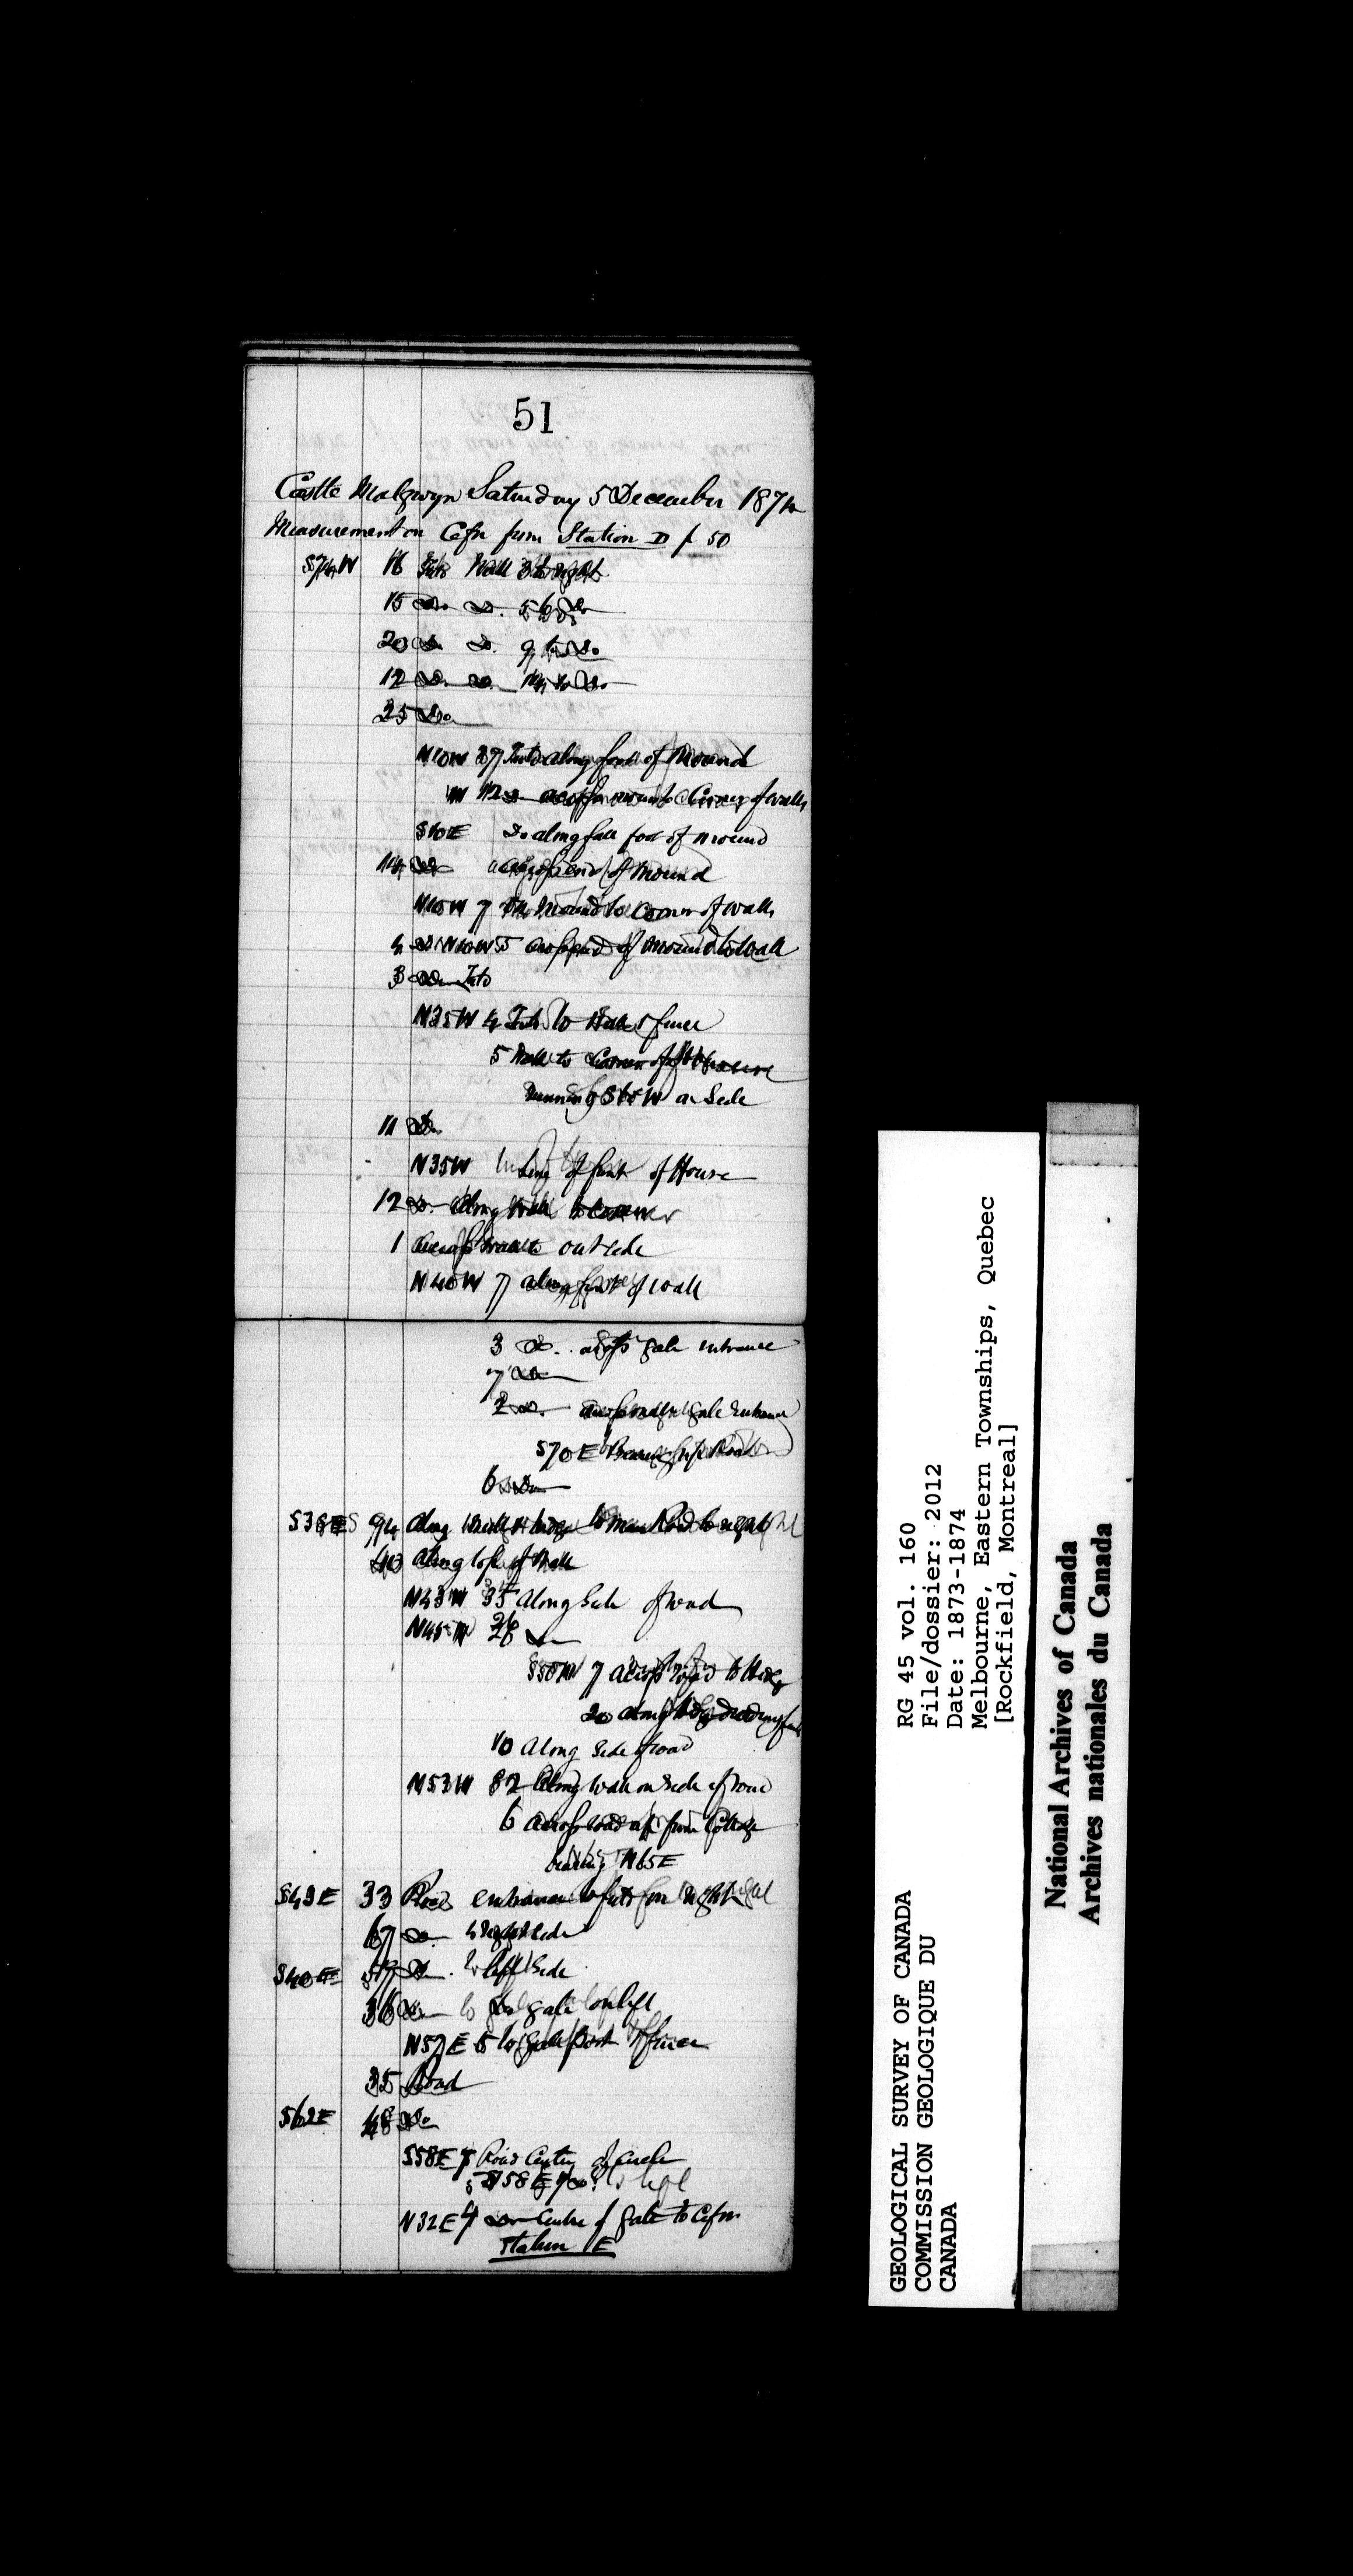 51
Castle Malgwyn Saturday 5 December 1874
Measurement on Cefn from Station D p 50
S74W 16 Into Wall 3 to right
15 Do Do. 5 to Do
20 Do Do. 9 to Do
12 Do Do. 14 to Do
25 Do
N10W 27 Into along foot of Mound
12 Do across mound to Corner of walls
S10E Do along foot of mound
14 Do across end of Mound
N10W 7 Mound to Corner of walls
4 Do N10W 5 across end of mound to Wall
3 Do Into
N35W 4 Into to Wall & fence
5 Wall to Corner of House
running S65W on Side
11 Do
N35W being of front of House
12 Do. Along Wall to Corner
1 Across wall to outside
N40W 7 along front of wall
3 Do. across gate entrance
7 Do
2 Do. gate Entrance
S70E Bearing
6 Do
94 Along Wall & hedge to main Road to right
40 Along top of Wall
N43W 35 Along Side of road
N45W 26 Do
S50W 7 across road to Hedge
20 along Hedge
10 Along Side of road
N53W 82 Along wall on Side of road
6 Across road up from Cottage
bearing N65E
S43E 33 Road entrance to right
67 Do. to right side
S40E 57 Do. to left Side
36 Do to gate on left
N57E 5 to gate post & fence
35 Road
S62E 48 Do
S58E 5 Road Centre of circle
N32E 4 Do Centre of gate to Cefn
Station E
RG 45 vol. 160
File/dossier: 2012
Date: 1873-1874
Melbourne, Eastern Townships, Quebec
[Rockfield, Montreal]
GEOLOGICAL SURVEY OF CANADA
COMMISSION GEOLOGIQUE DU
CANADA
National Archives of Canada
Archives nationales du Canada